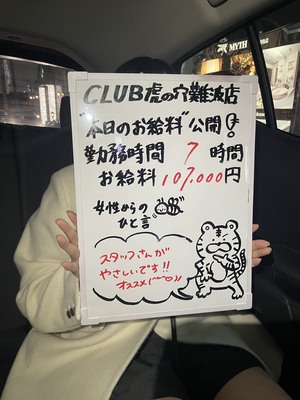 CLUB虎の穴難波店
"本日のお給料"公開!
勤務時間 7 時間
お給料 107,000円
女性からの
ひと言
スタッフさんが
やさしいです!!
オススメ(^^♡)/
MYTH